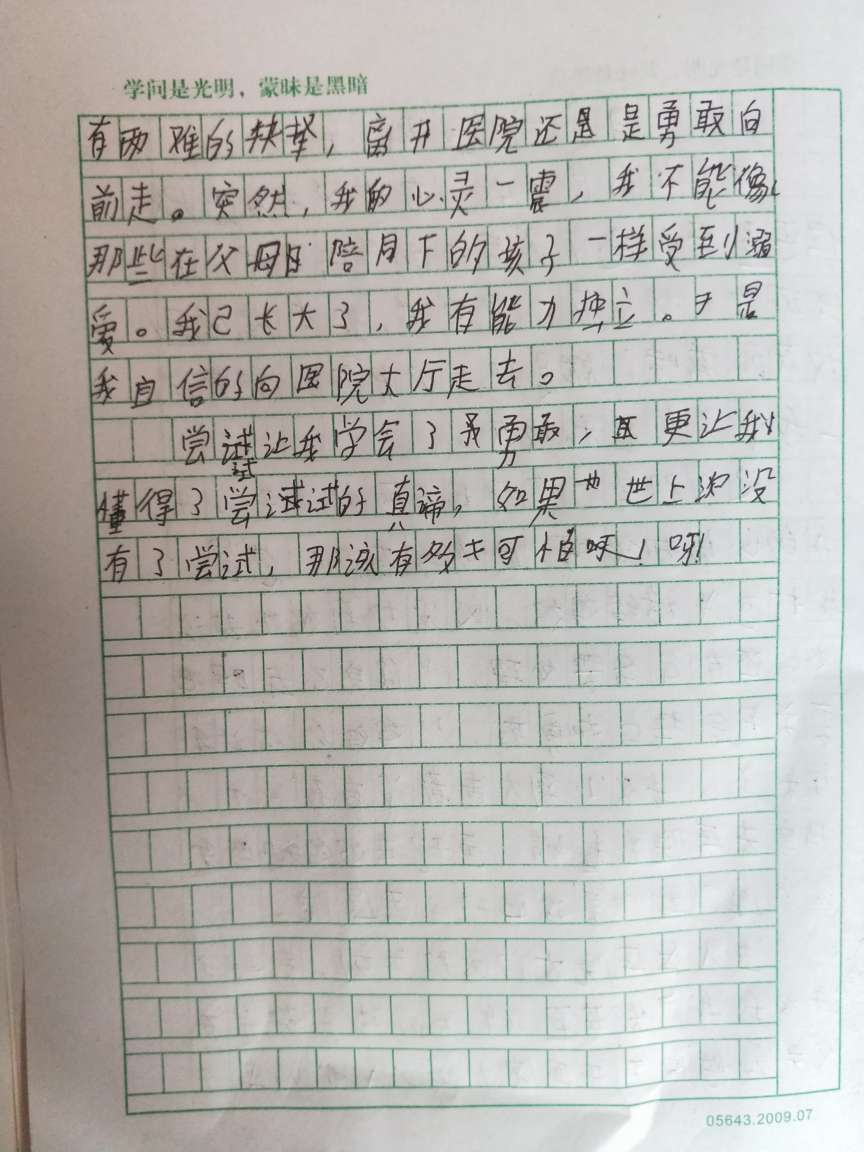 学问是光明，蒙昧是黑暗
有两难的抉择，离开医院还是是勇敢向
前走。突然，我的心灵一震，我不能像
那些在父母陪月下的孩子一样受到溺
爱。我已长大了，我有能力独立。于是
我自信的向医院大厅走去。
尝试让我学会了勇敢，更让我
懂得了尝试试的真谛，如果世上没
有了尝试，那该有多可怕呀！呀！
05643.2009.07